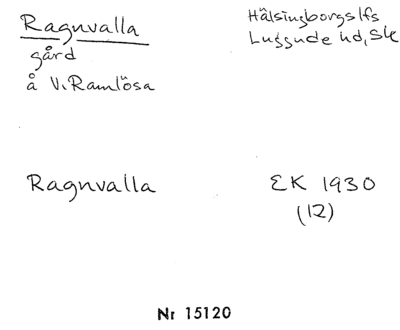 Ragnvalla
gård
å V. Ramlösa
Hälsingborgs lfs
Luggude hd, Sk
Ragnvalla
EK 1930
(12)
Nr 15120